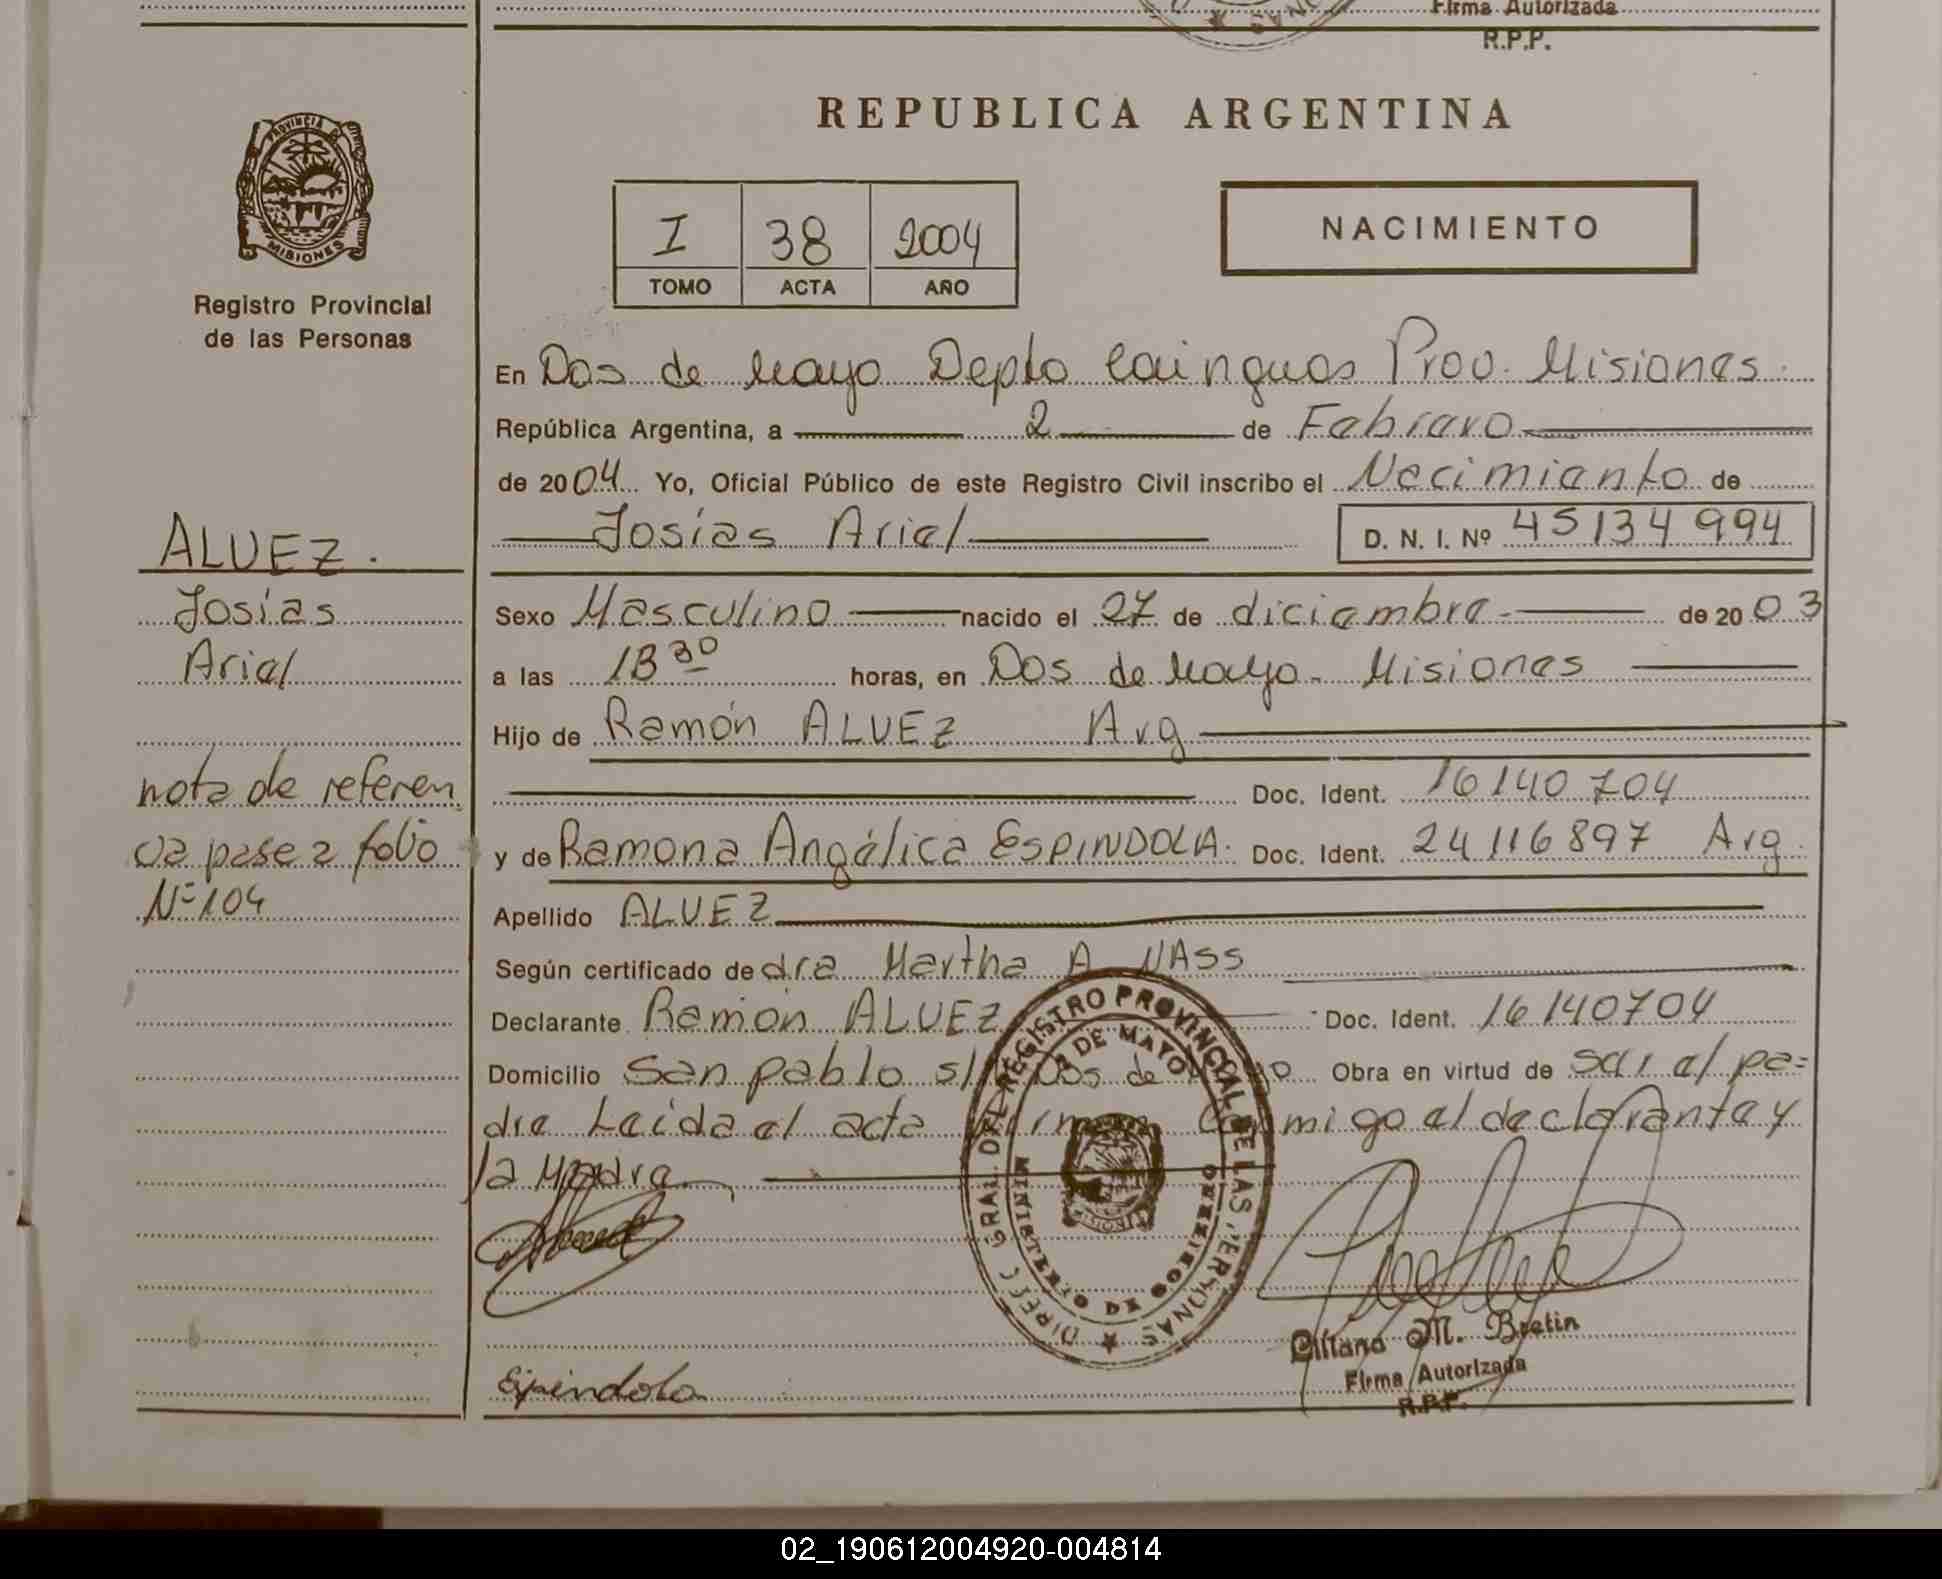 Firma Autorizada
R.P.P.
REPUBLICA ARGENTINA
PROVINCIA DE
MISIONES
Registro Provincial
de las Personas
I 38 2004
TOMO ACTA AÑO
NACIMIENTO
En Dos de Mayo Depto Cainguas Prov. Misiones.
República Argentina, a 2 de Febrero
de 2004 Yo, Oficial Público de este Registro Civil inscribo el Nacimiento de
Josías Ariel D. N. I. Nº 45134994
ALVEZ.
Josías
Ariel
Sexo Masculino nacido el 27 de diciembre de 2003
a las 13 30 horas, en Dos de Mayo - Misiones
Hijo de Ramón ALVEZ Arg
Doc. Ident. 16140704
y de Ramona Angélica ESPINDOLA. Doc. Ident. 24116897 Arg.
nota de referen
cia pase a folio
Nº 104
Apellido ALVEZ
Según certificado de dra Martha A NASS
Declarante Ramón ALVEZ Doc. Ident. 16140704
Domicilio San pablo s/ Dos de Obra en virtud de ser el pa=
dre Leída el acta firman conmigo el declarante y
la Madre
DIREC GRAL DEL REGISTRO PROVINCIAL DE LAS PERSONAS
2 DE MAYO
MINISTERIO DE GOBIERNO
Espindola
Liliana M. Bretin
Firma Autorizada
R.P.P.
02_190612004920-004814